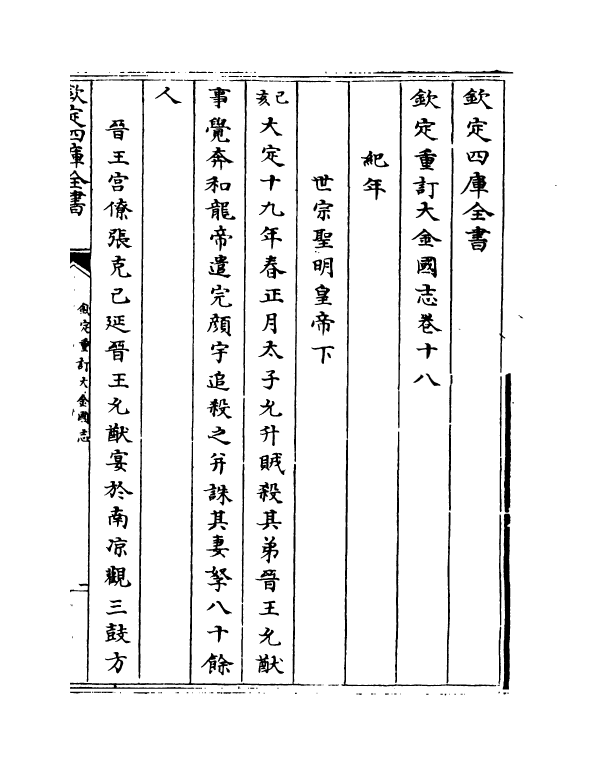 欽定四庫全書
欽定重訂大金國志卷十八
紀年
世宗聖明皇帝下
己亥大定十九年春正月太子允升賊殺其弟晉王允猷
事覺奔和龍帝遣完顔宇追殺之并誅其妻孥八十餘
人
晉王宫僚張克己延晉王允猷宴於南凉觀三鼓方
欽定四庫全書
欽定重訂大金國志